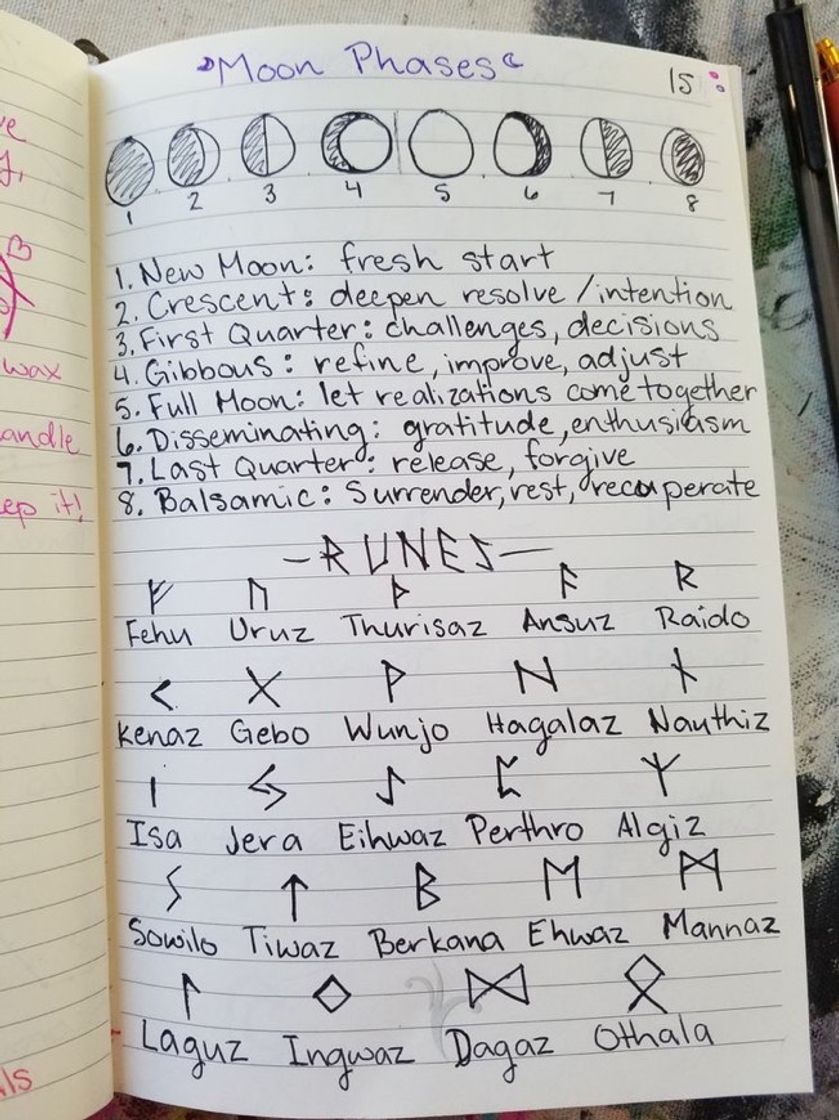 Moon Phases
15
1 2 3 4 5 6 7 8
1. New Moon: fresh start
2. Crescent: deepen resolve/intention
3. First Quarter: challenges, decisions
4. Gibbous: refine, improve, adjust
5. Full Moon: let realizations come together
6. Disseminating: gratitude, enthusiasm
7. Last Quarter: release, forgive
8. Balsamic: Surrender, rest, recuperate
—RUNES—
ᚠ ᚢ ᚦ ᚨ ᚱ
Fehu Uruz Thurisaz Ansuz Raido
ᚲ ᚷ ᚹ ᚺ ᚾ
Kenaz Gebo Wunjo Hagalaz Nauthiz
ᛁ ᛃ ᛇ ᛈ ᛉ
Isa Jera Eihwaz Perthro Algiz
ᛊ ᛏ ᛒ ᛖ ᛗ
Sowilo Tiwaz Berkana Ehwaz Mannaz
ᛚ ᛜ ᛞ ᛟ
Laguz Ingwaz Dagaz Othala
wax
andle
ep it!